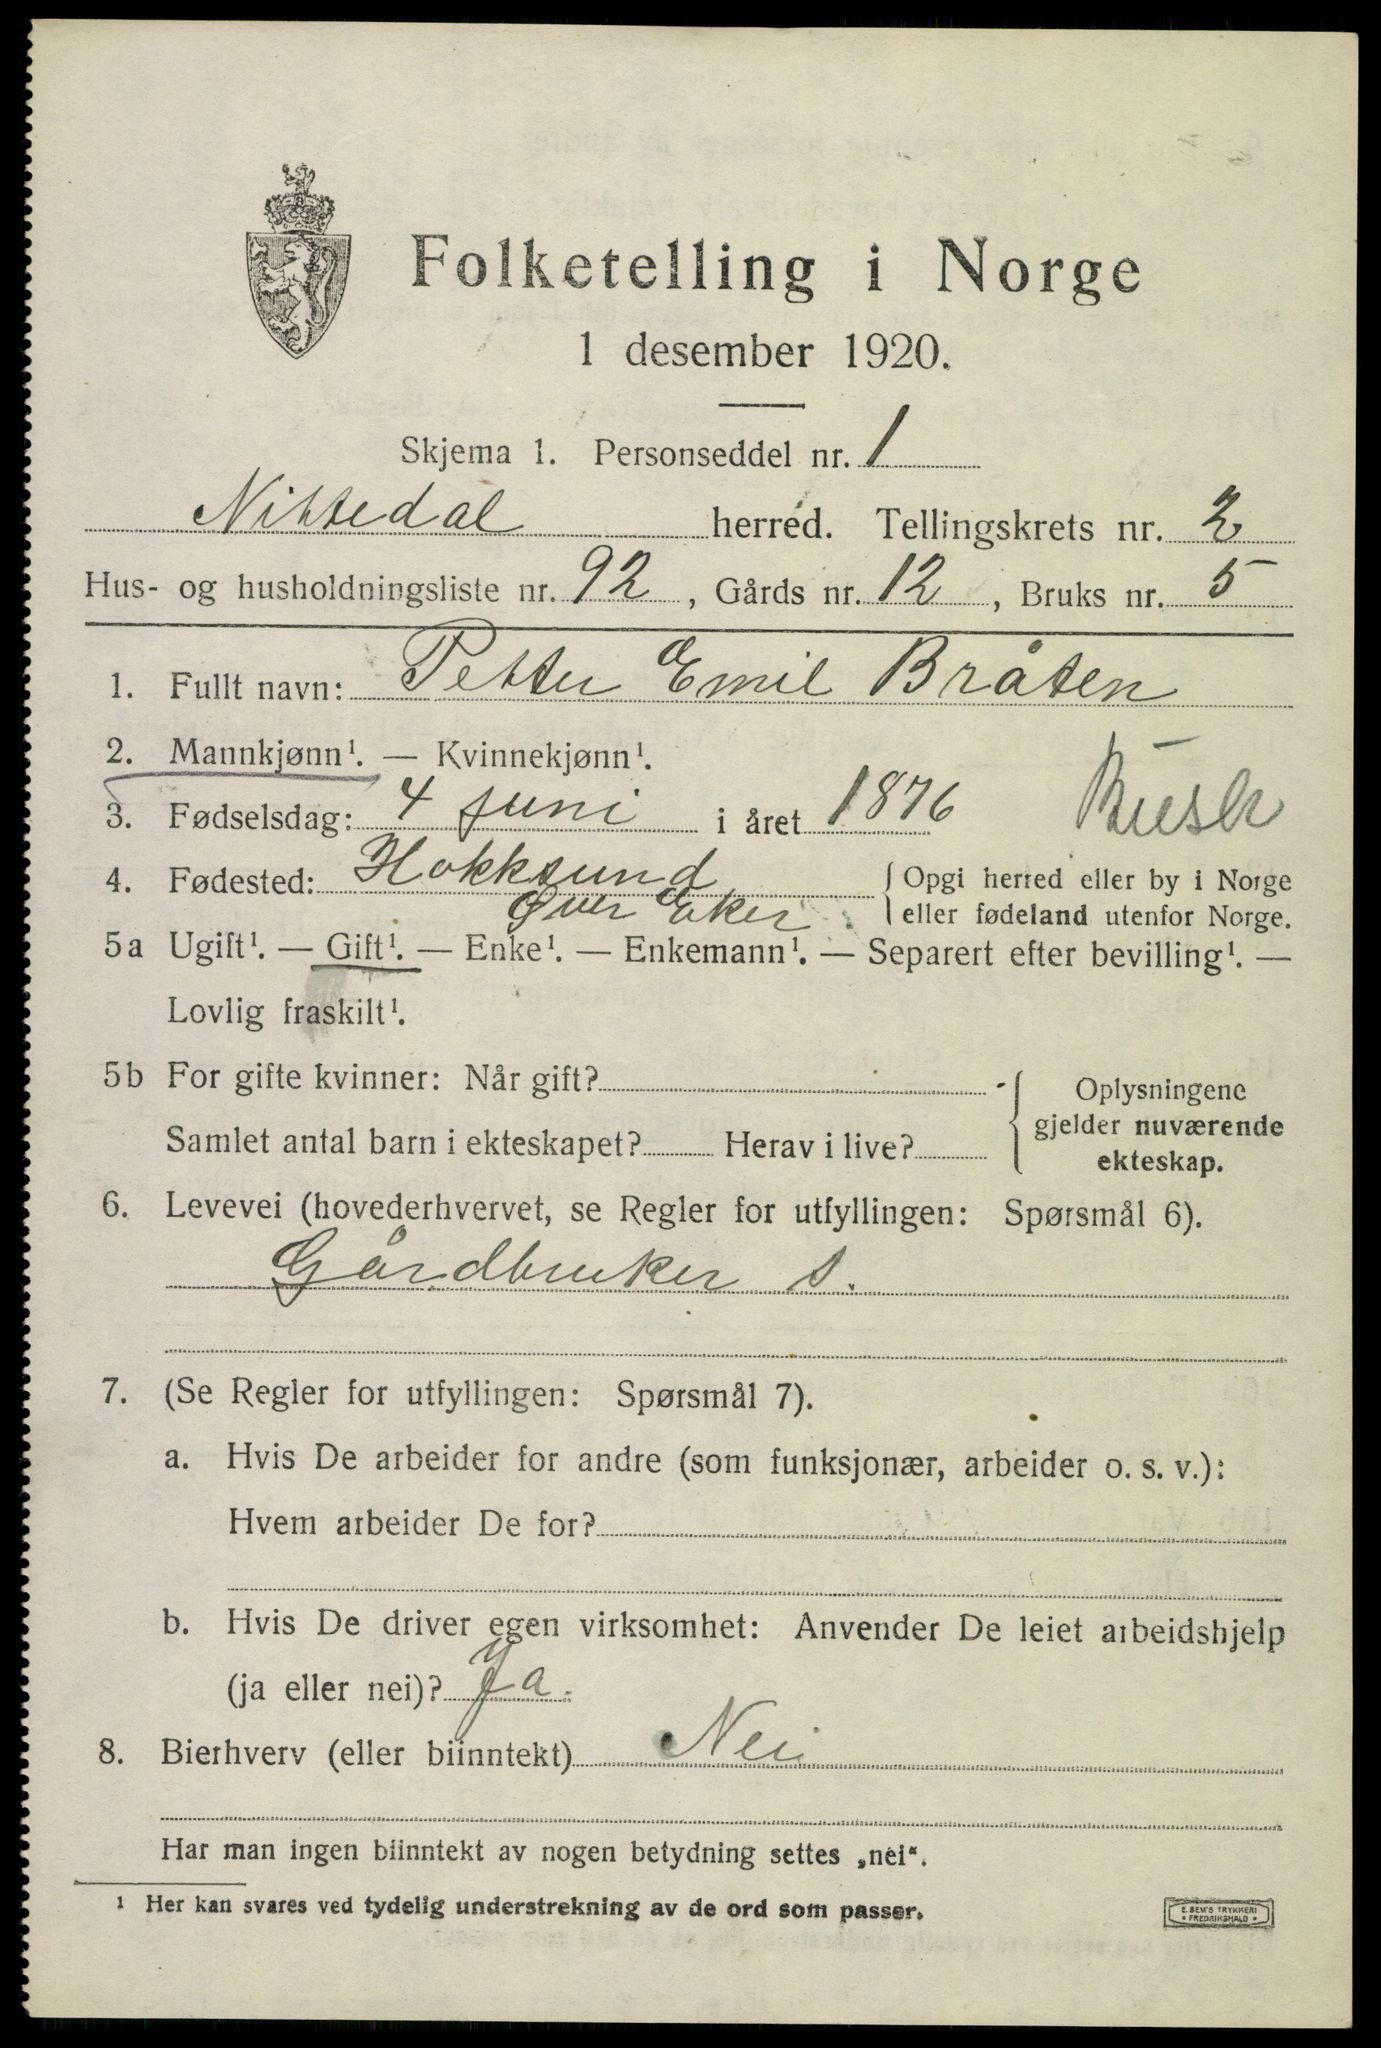 Folketelling i Norge
1 desember 1920.
Skjema 1. Personseddel nr. 1
Nittedal herred. Tellingskrets nr. 2
Hus- og husholdningsliste nr. 92, Gårds nr. 12, Bruks nr. 5
1. Fullt navn: Petter Emil Bråten
2. Mannkjønn¹. — Kvinnekjønn¹.
3. Fødselsdag: 4 juni i året 1876
4. Fødested: Hokksund Øver Eker { Opgi herred eller by i Norge
eller fødeland utenfor Norge.
5a Ugift¹. — Gift¹. — Enke¹. — Enkemann¹. — Separert efter bevilling¹. —
Lovlig fraskilt¹.
5b For gifte kvinner: Når gift?
Samlet antal barn i ekteskapet? Herav i live?
Oplysningene
gjelder nuværende
ekteskap.
6. Levevei (hovederhvervet, se Regler for utfyllingen: Spørsmål 6).
Gårdbruker s.
7. (Se Regler for utfyllingen: Spørsmål 7).
a. Hvis De arbeider for andre (som funksjonær, arbeider o. s. v.):
Hvem arbeider De for?
b. Hvis De driver egen virksomhet: Anvender De leiet arbeidshjelp
(ja eller nei)? Ja.
8. Bierhverv (eller biinntekt) Nei
Har man ingen biinntekt av nogen betydning settes „nei“.
¹ Her kan svares ved tydelig understrekning av de ord som passer.
E. SEM'S TRYKKERI
FREDRIKSHALD